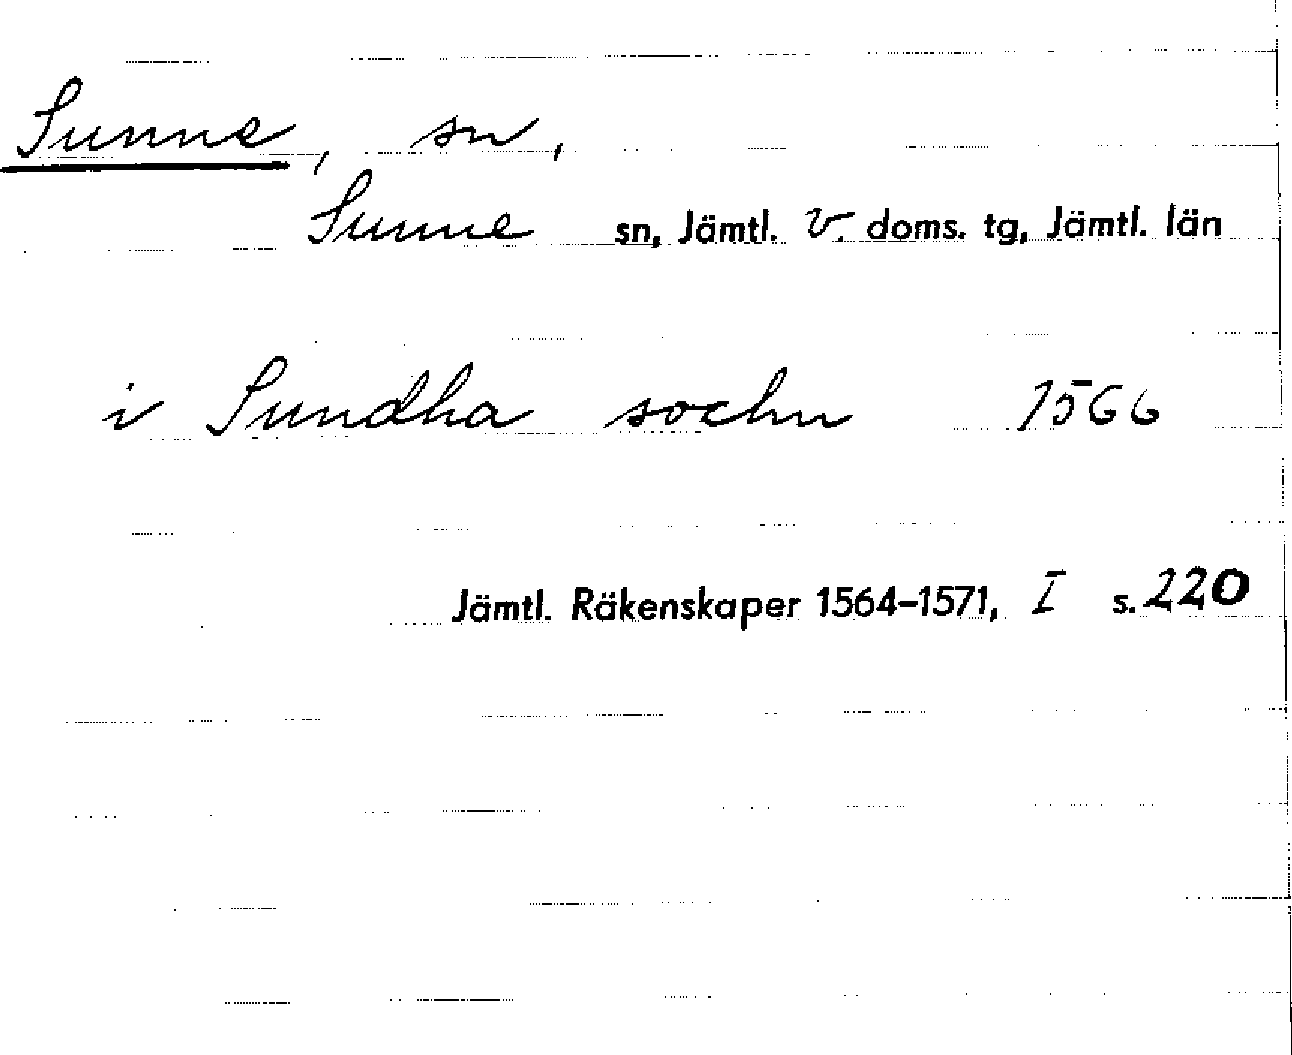 Sunne, sn,
Sunne sn, Jämtl. v. doms. tg, Jämtl. län
i Sundha sochn 1566
Jämtl. Räkenskaper 1564–1571, I s. 220